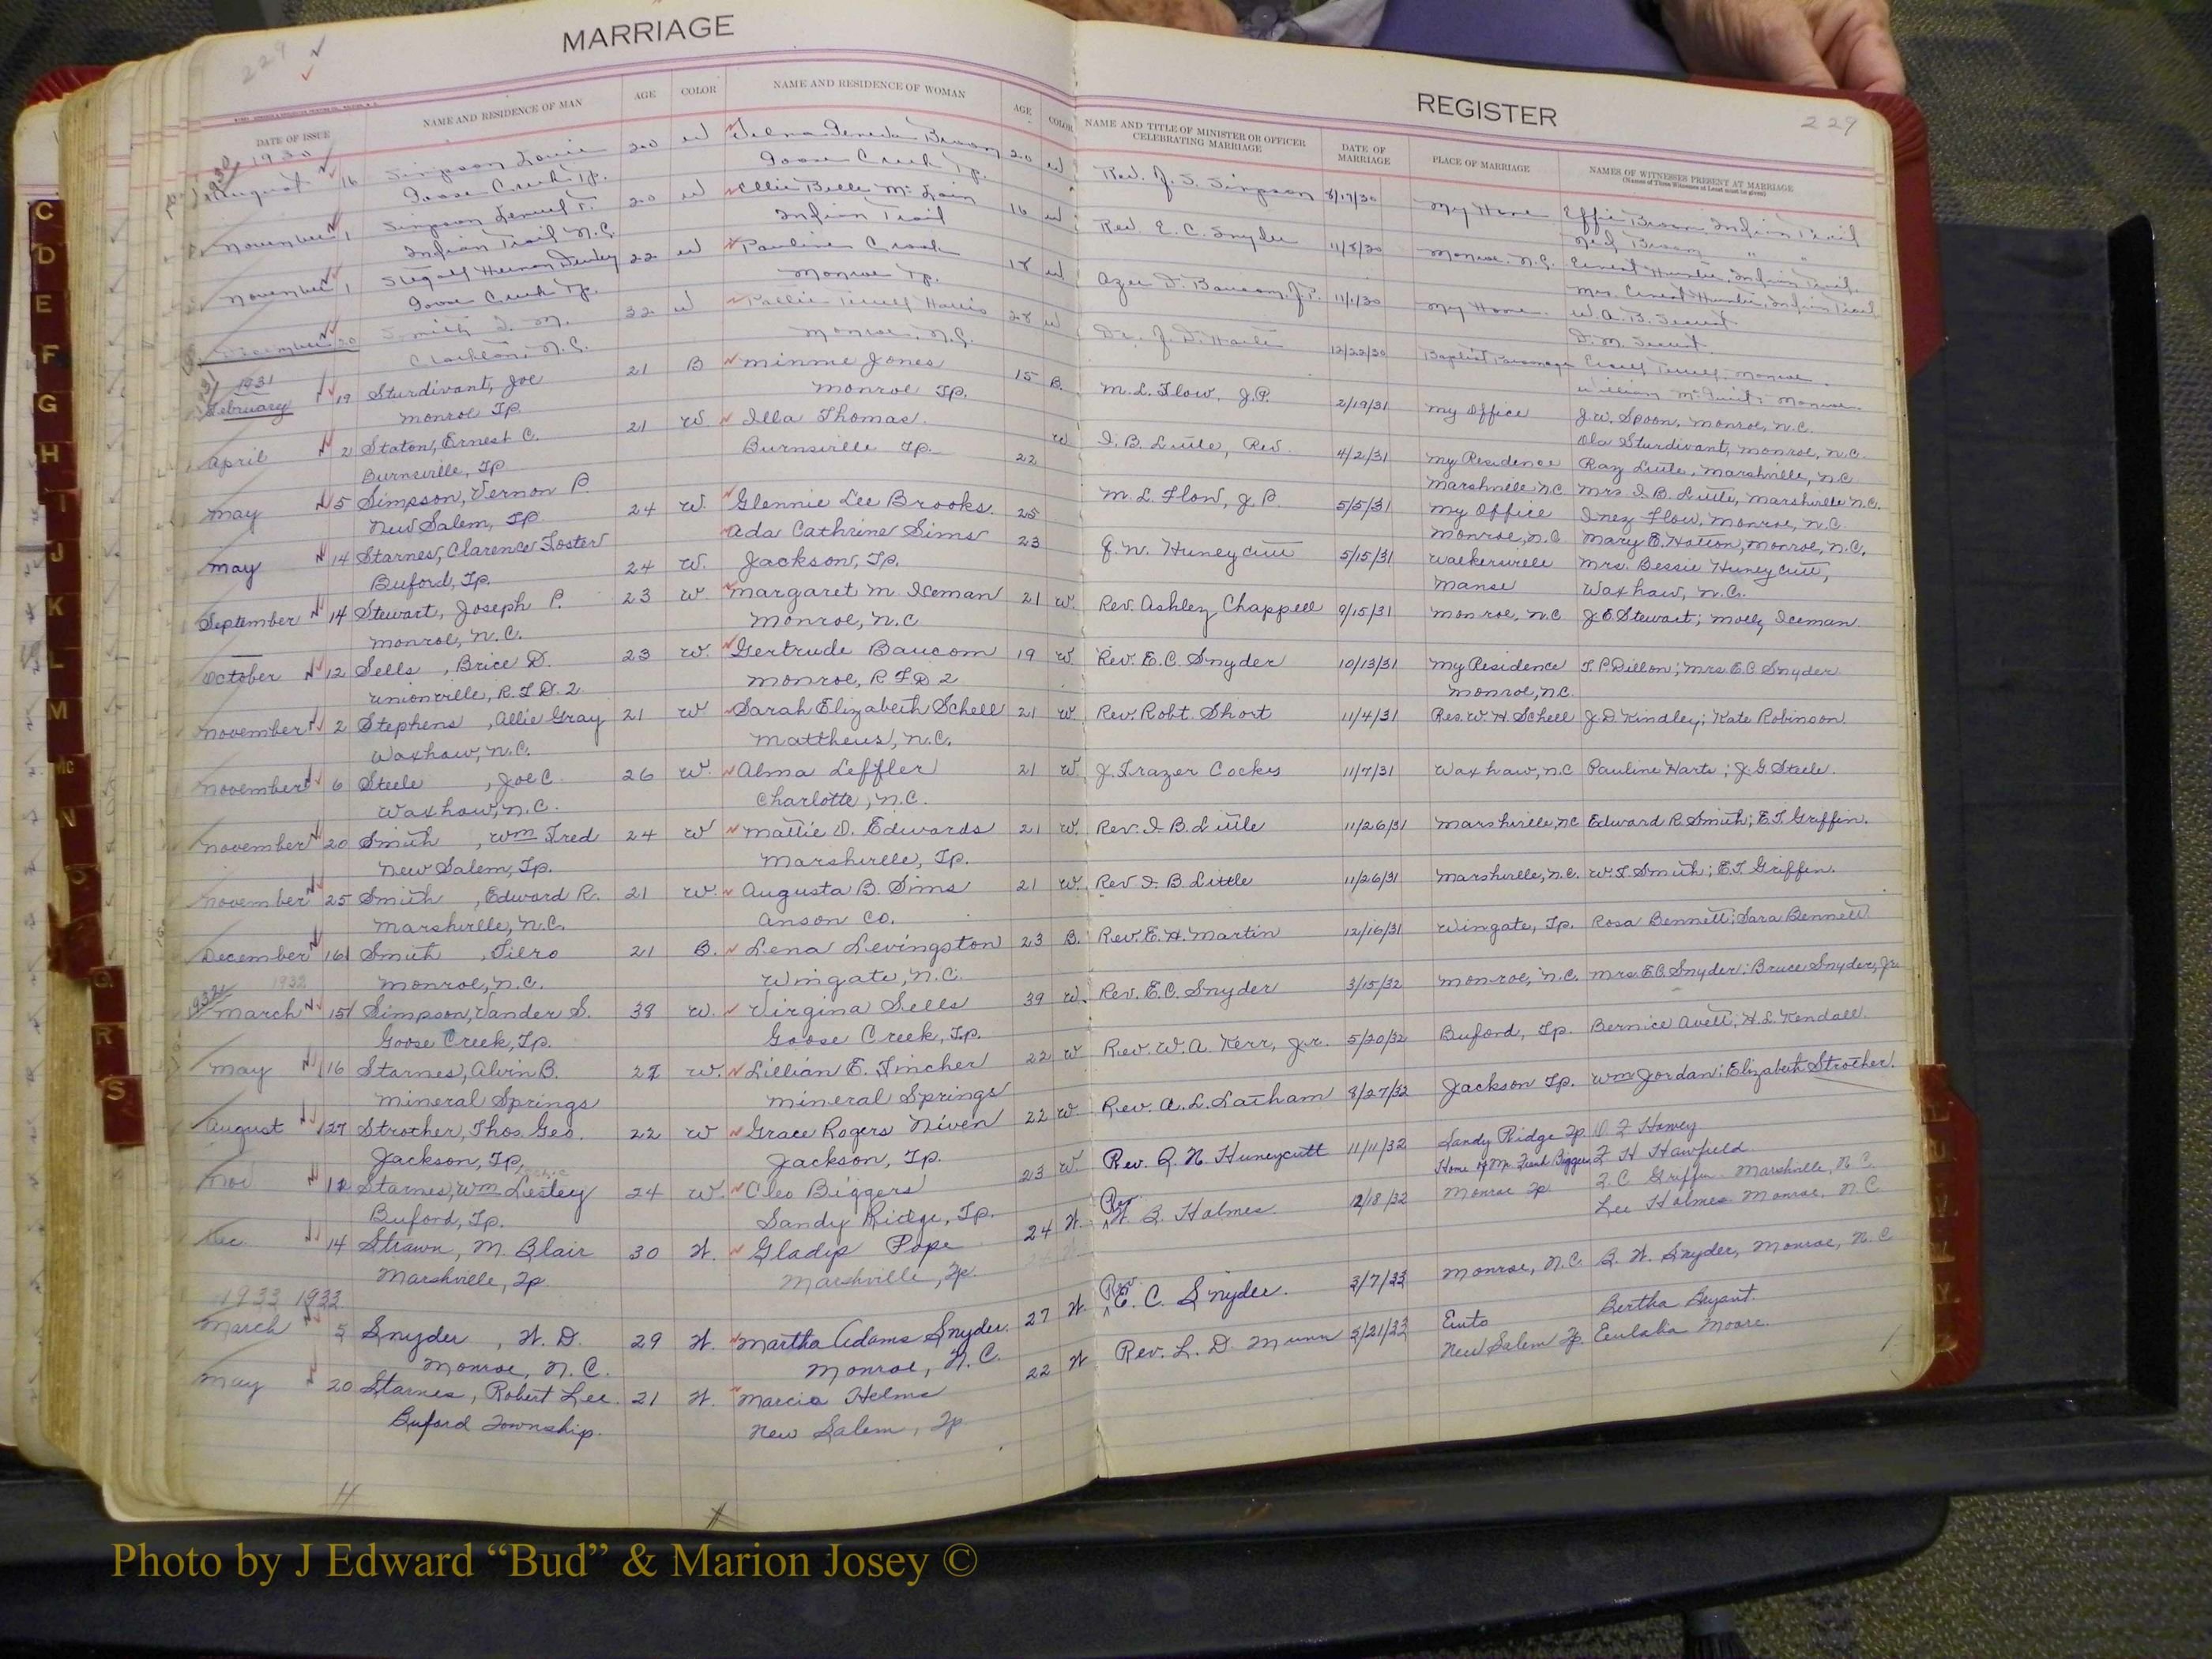 MARRIAGE
REGISTER
229
229
DATE OF ISSUE
NAME AND RESIDENCE OF MAN
AGE
COLOR
NAME AND RESIDENCE OF WOMAN
AGE
COLOR
NAME AND TITLE OF MINISTER OR OFFICER CELEBRATING MARRIAGE
DATE OF MARRIAGE
PLACE OF MARRIAGE
NAMES OF WITNESSES PRESENT AT MARRIAGE
(Names of Three Witnesses at Least must be given)
1930 1930
August 16 Simpson Louie 20 W 20 W Rev. J. S. Simpson 8/17/30 My Home Effie Brown Indian Trail
Goose Creek Tp. Goose Creek Tp.
November 1 Simpson Lemuel T. 20 W Ollie Belle McLain 16 W Rev E. C. Snyder 11/8/30 Monroe, N.C. Ernest Hunter, Indian Trail
Indian Trail N.C. Indian Trail Mrs. Ernest Hunter, Indian Trail
November 1 Stegall Herman Dewey 22 W Pauline Crook 18 W D. Baucom, J.P. 11/1/30 My Home W. A. B. Secrest
Goose Creek Tp. Monroe Tp. D. M. Secrest
December 20 Smith J. M. 32 W 28 W 12/22/30 Baptist Parsonage
N.C. Monroe, N.C.
1931
February 19 Sturdivant, Joe 21 B Minnie Jones 15 B. M. L. Flow, J.P. 2/19/31 My Office J. W. Spoon, Monroe, N.C.
Monroe Tp. Monroe Tp. Ola Sturdivant, Monroe, N.C.
April 2 Staton, Ernest C. 21 W. Illa Thomas 22 W. I. B. Little, Rev. 4/2/31 My Residence Ray Little, Marshville, N.C.
Burnsville, Tp Burnsville Tp. Marshville N.C Mrs I. B. Little, Marshville N.C.
May 5 Simpson, Vernon P. 24 W. Glennie Lee Brooks. 25 M. L. Flow, J.P. 5/5/31 My Office Inez Flow, Monroe, N.C.
New Salem, Tp Monroe, N.C Mary E. Hatton, Monroe, N.C.
May 14 Starnes, Clarence Foster 24 W. Ada Cathrine Sims 23 Q. N. Huneycutt 5/15/31 Walkersville Mrs. Bessie Huneycutt,
Buford, Tp. Jackson, Tp. Manse Waxhaw, N.C.
September 14 Stewart, Joseph P. 23 W. Margaret M Iceman 21 W. Rev. Ashley Chappell 9/15/31 Monroe, N.C J E Stewart; Molly Iceman
Monroe, N.C. Monroe, N.C
October 12 Sells, Brice D. 23 W. Gertrude Baucom 19 W. Rev. E. C. Snyder 10/13/31 My Residence T. P. Dillon; Mrs. E C Snyder
Unionville, R.F.D. 2 Monroe, R F D 2 Monroe, N.C.
November 2 Stephens, Allie Gray 21 W Sarah Elizabeth Schell 21 W. Rev. Robt. Short 11/4/31 Res. W. H. Schell J. D. Kindley; Kate Robinson
Waxhaw, N.C. Matthews, N.C.
November 6 Steele, Joe C. 26 W. Alma Leffler 21 W. J. Frazer Cocks 11/7/31 Waxhaw, N.C Pauline Harte; J. G. Steele.
Waxhaw, N.C. Charlotte, N.C.
November 20 Smith, Wm Fred 24 W Mattie D. Edwards 21 W. Rev. I. B. Little 11/26/31 Marshville, N.C Edward R. Smith; E. T. Griffin.
New Salem, Tp. Marshville, Tp.
November 25 Smith, Edward R. 21 W. Augusta B. Sims 21 W. Rev I. B Little 11/26/31 Marshville, N.C. W. F Smith; E T Griffin.
Marshville, N.C. Anson Co.
December 16 Smith, Tilro 21 B. Lena Levingston 23 B. Rev. E. H. Martin 12/16/31 Wingate, Tp. Rosa Bennett; Sara Bennett
Monroe, N.C. Wingate, N.C.
1932 1932
March 15 Simpson, Vander S. 38 W. Virgina Sells 39 W. Rev. E. C. Snyder 3/15/32 Monroe, N.C. Mrs. E C. Snyder; Bruce Snyder, Jr.
Goose Creek, Tp. Goose Creek, Tp.
May 16 Starnes, Alvin B. W. Lillian E. Fincher 22 W Rev. W. A. Kerr, Jr. 5/20/32 Buford, Tp. Bernice Avett; H. L. Kendall.
Mineral Springs Mineral Springs
August 27 Strother, Thos. Geo. 22 W Grace Rogers Niven 22 W. Rev. A. L. Latham 8/27/32 Jackson Tp. Wm Jordan; Elizabeth Strother.
Jackson, Tp. Jackson, Tp.
Nov. 12 Starnes, Wm Lesley 24 W. Cleo Biggers 23 W. Rev. Q. N Huneycutt 11/11/32 Sandy Ridge Tp. Howey
Buford, Tp. Sandy Ridge, Tp. Home of Mr Frank Biggers F H Hawfield
Dec. 14 Strawn, M. Blair 30 W. Gladys Pope 24 W. Rev W. B. Holmes 12/18/32 Monroe Tp. Z. C Griffin Marshville, N.C.
Marshville, Tp. Marshville, Tp. Lee Holmes Monroe, N.C
1933 1933
March 5 Snyder, W. D. 29 W. Martha Adams Snyder. 27 W. Rev E. C. Snyder. 3/7/33 Monroe, N.C. B. W. Snyder, Monroe, N.C
Monroe, N.C. Monroe, N.C.
May 20 Starnes, Robert Lee. 21 W. Marcia Helms 22 W Rev. L. D. Munn 5/21/33 Euto Bertha Bryant.
Buford Township. New Salem, Tp. New Salem Tp. Eulalia Moore.
C
D
E
F
G
H
I
J
K
L
M
Mc
N
O
Q
R
S
Photo by J Edward “Bud” & Marion Josey ©